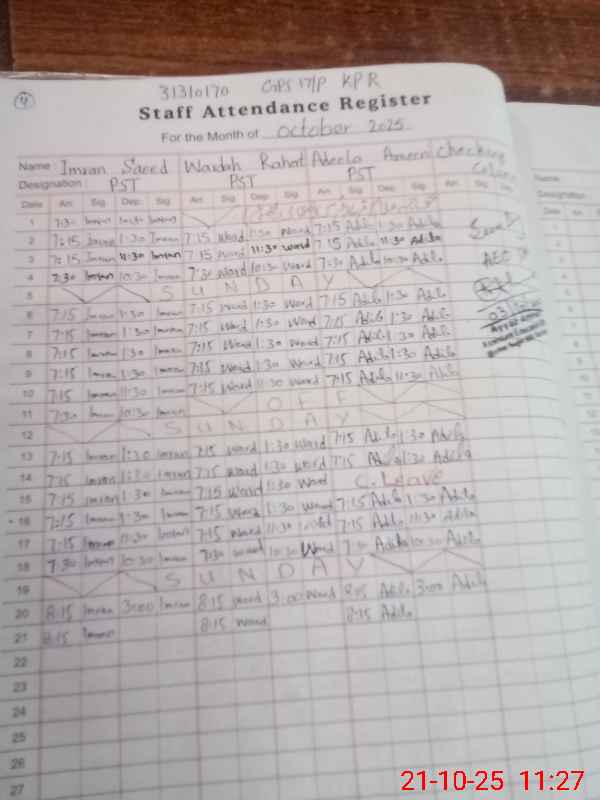 4
31310170 GPS 17/P KPR
Staff Attendance Register
For the Month of October 2025
Name: Imran Saeed Wardah Rahat Adeela Ameen Checking
Designation: PST PST PST
Date Arr. Sig. Dep. Sig. Arr. Sig. Dep. Sig. Arr. Sig. Dep. Sig. Arr. Sig.
1 7:30 Imran Imran
2 7:15 Imran 1:30 Imran 7:15 Ward 1:30 Ward 7:15 Adila 1:30 Adila
3 7:15 Imran 11:30 Imran 7:15 Ward 11:30 Ward 7:15 Adila 11:30 Adila
4 7:30 Imran 10:30 Imran 7:30 Ward 10:30 Ward 7:30 Adila 10:30 Adila
5 SUNDAY
6 7:15 Imran 1:30 Imran 7:15 Ward 1:30 Ward 7:15 Adila 1:30 Adila
7 7:15 Imran 1:30 Imran 7:15 Ward 1:30 Ward 7:15 Adila 1:30 Adila
8 7:15 Imran 1:30 Imran 7:15 Ward 1:30 Ward 7:15 Adila 1:30 Adila
9 7:15 Imran 1:30 Imran 7:15 Ward 1:30 Ward 7:15 Adila 1:30 Adila
10 7:15 Imran 11:30 Imran 7:15 Ward 11:30 Ward 7:15 Adila 11:30 Adila
11 7:30 Imran 10:30 Imran OFF
12 SUNDAY
13 7:15 Imran 1:30 Imran 7:15 Ward 1:30 Ward 7:15 Adila 1:30 Adila
14 7:15 Imran 1:30 Imran 7:15 Ward 1:30 Ward 7:15 Adila 1:30 Adila
15 7:15 Imran 1:30 Imran 7:15 Ward 11:30 Ward C. Leave
16 7:15 Imran 1:30 Imran 7:15 Ward 1:30 Ward 7:15 Adila 1:30 Adila
17 7:15 Imran 11:30 Imran 7:15 Ward 11:30 Ward 7:15 Adila 11:30 Adila
18 7:30 Imran 10:30 Imran 7:30 Ward 10:30 Ward 7:30 Adila 10:30 Adila
19 SUNDAY
20 8:15 Imran 3:00 Imran 8:15 Ward 3:00 Ward 8:15 Adila 3:00 Adila
21 8:15 Imran 8:15 Ward 8:15 Adila
22
23
24
25
26
27
AEO
Name:
Designation:
Date Arr.
21-10-25 11:27